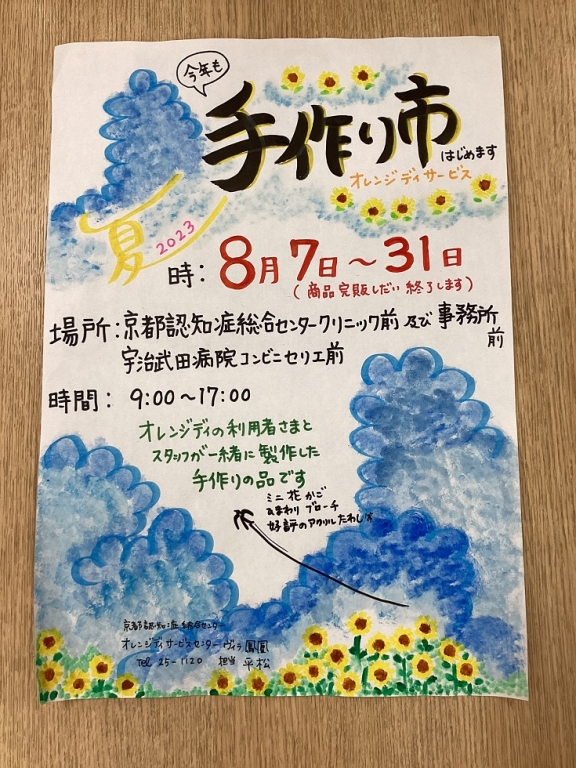 今年も
手作り市
はじめます
オレンジデイサービス
夏
2023
時:8月7日〜31日
(商品完販しだい終了します)
場所:京都認知症総合センタークリニック前及び事務所前
宇治武田病院コンビニセリエ前
時間: 9:00〜17:00
オレンジデイの利用者さまと
スタッフが一緒に製作した
手作りの品です
ミニ花かご
ひまわりブローチ
好評のアクリルたわし
京都認知症総合センター
オレンジデイサービスセンターヴィラ鳳凰
Tel 25-1120 担当 平松